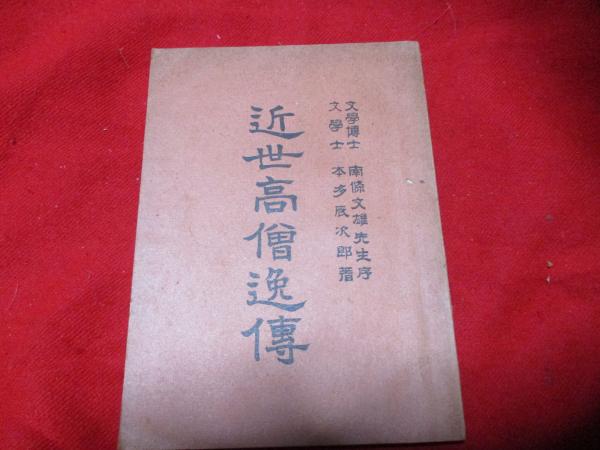 文學博士 南條文雄先生序
文學士 本多辰次郎著
近世高僧逸傳